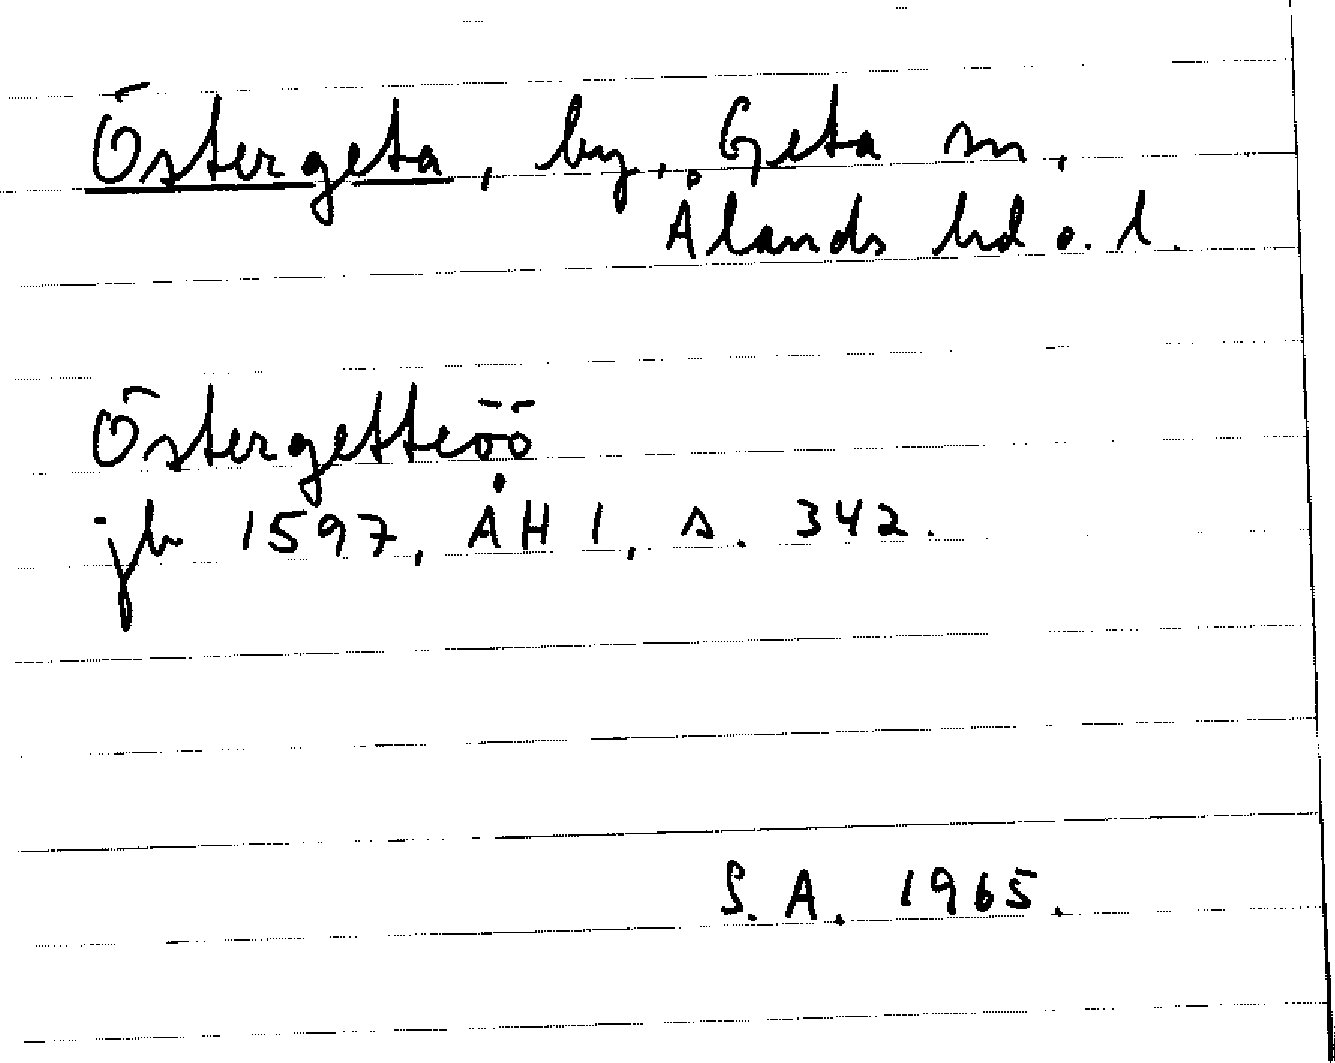 Östergeta, by, Geta sn,
Ålands hd o. l.
Östergetteöö
jb 1597, ÅH 1, s. 342.
S. A. 1965.